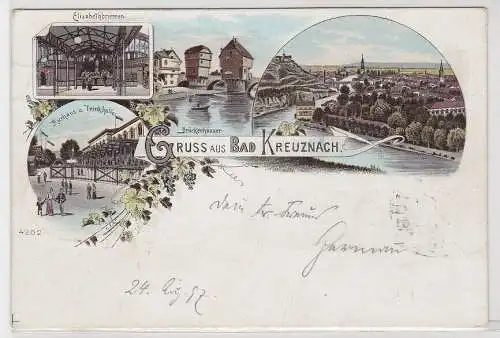 Elisabethbrunnen.
Kurhaus u. Trinkhalle
Brückenhäuser
GRUSS AUS BAD KREUZNACH.
4202
Dein tr. Freund
Herman
24. Aug. 97